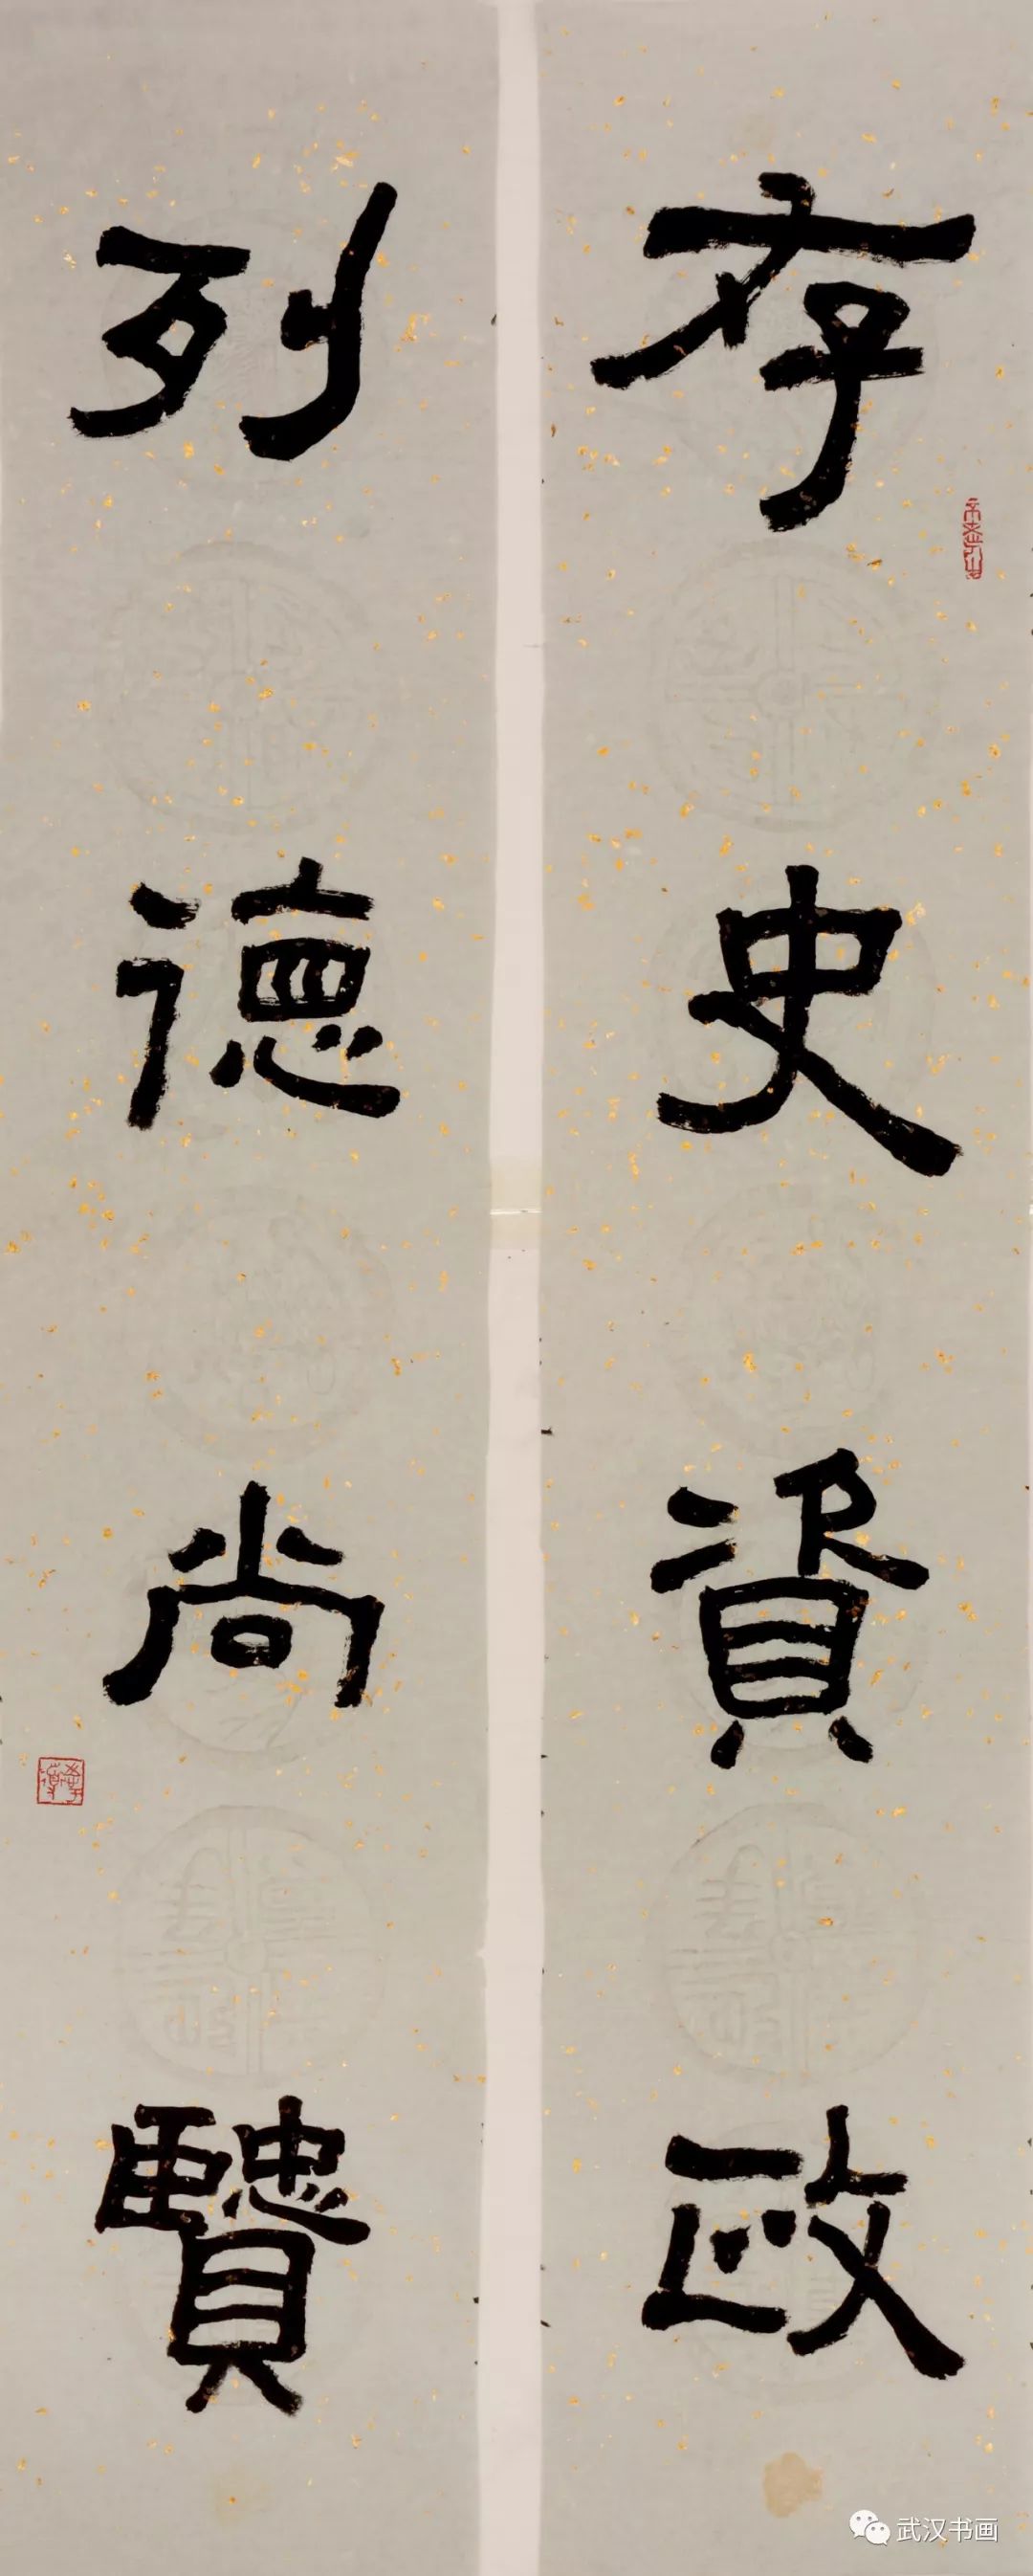 存史資政
列德尚贒
武汉书画